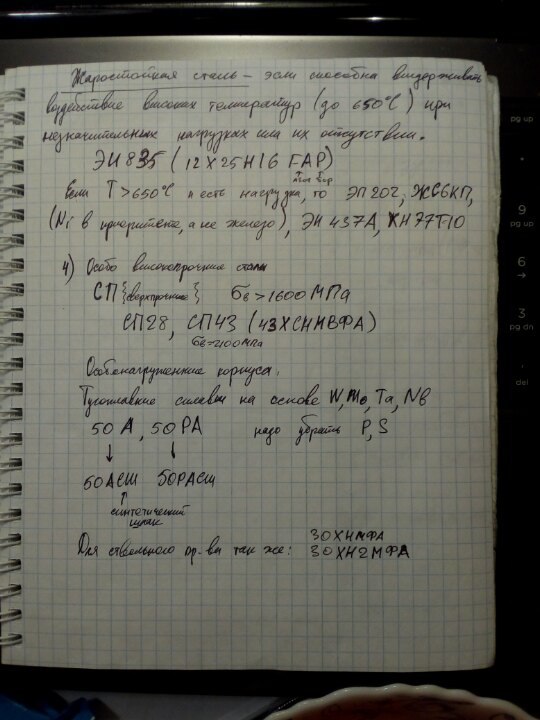 Жаростойкая сталь – если способна выдерживать
воздействие высоких температур (до 650°С) при
незначительных нагрузках или их отсутствии.
ЭИ 835 (12Х25Н16 ГАР)
азот бор
Если Т > 650°С и есть нагрузка, то ЭП 202, ЖС6КП,
(Ni в приоритете, а не железо), ЭИ 437А, ХН77ТЮ
4) Особо высокопрочные стали
СП {сверхпрочные} σв > 1600 МПа
СП28, СП43 (43ХСНМВФА)
σв=2100МПа
Особонагруженные корпуса.
Тугоплавкие сплавы на основе W, Mo, Ta, Nb
50А, 50РА надо убрать P, S
↓ ↓
50АСШ 50РАСШ
↑
синтетический
шлак
Для ствольного пр-ва так же: 30ХНМФА
30ХН2МФА
pg up
9
pg up
6
→
3
pg dn
.
del